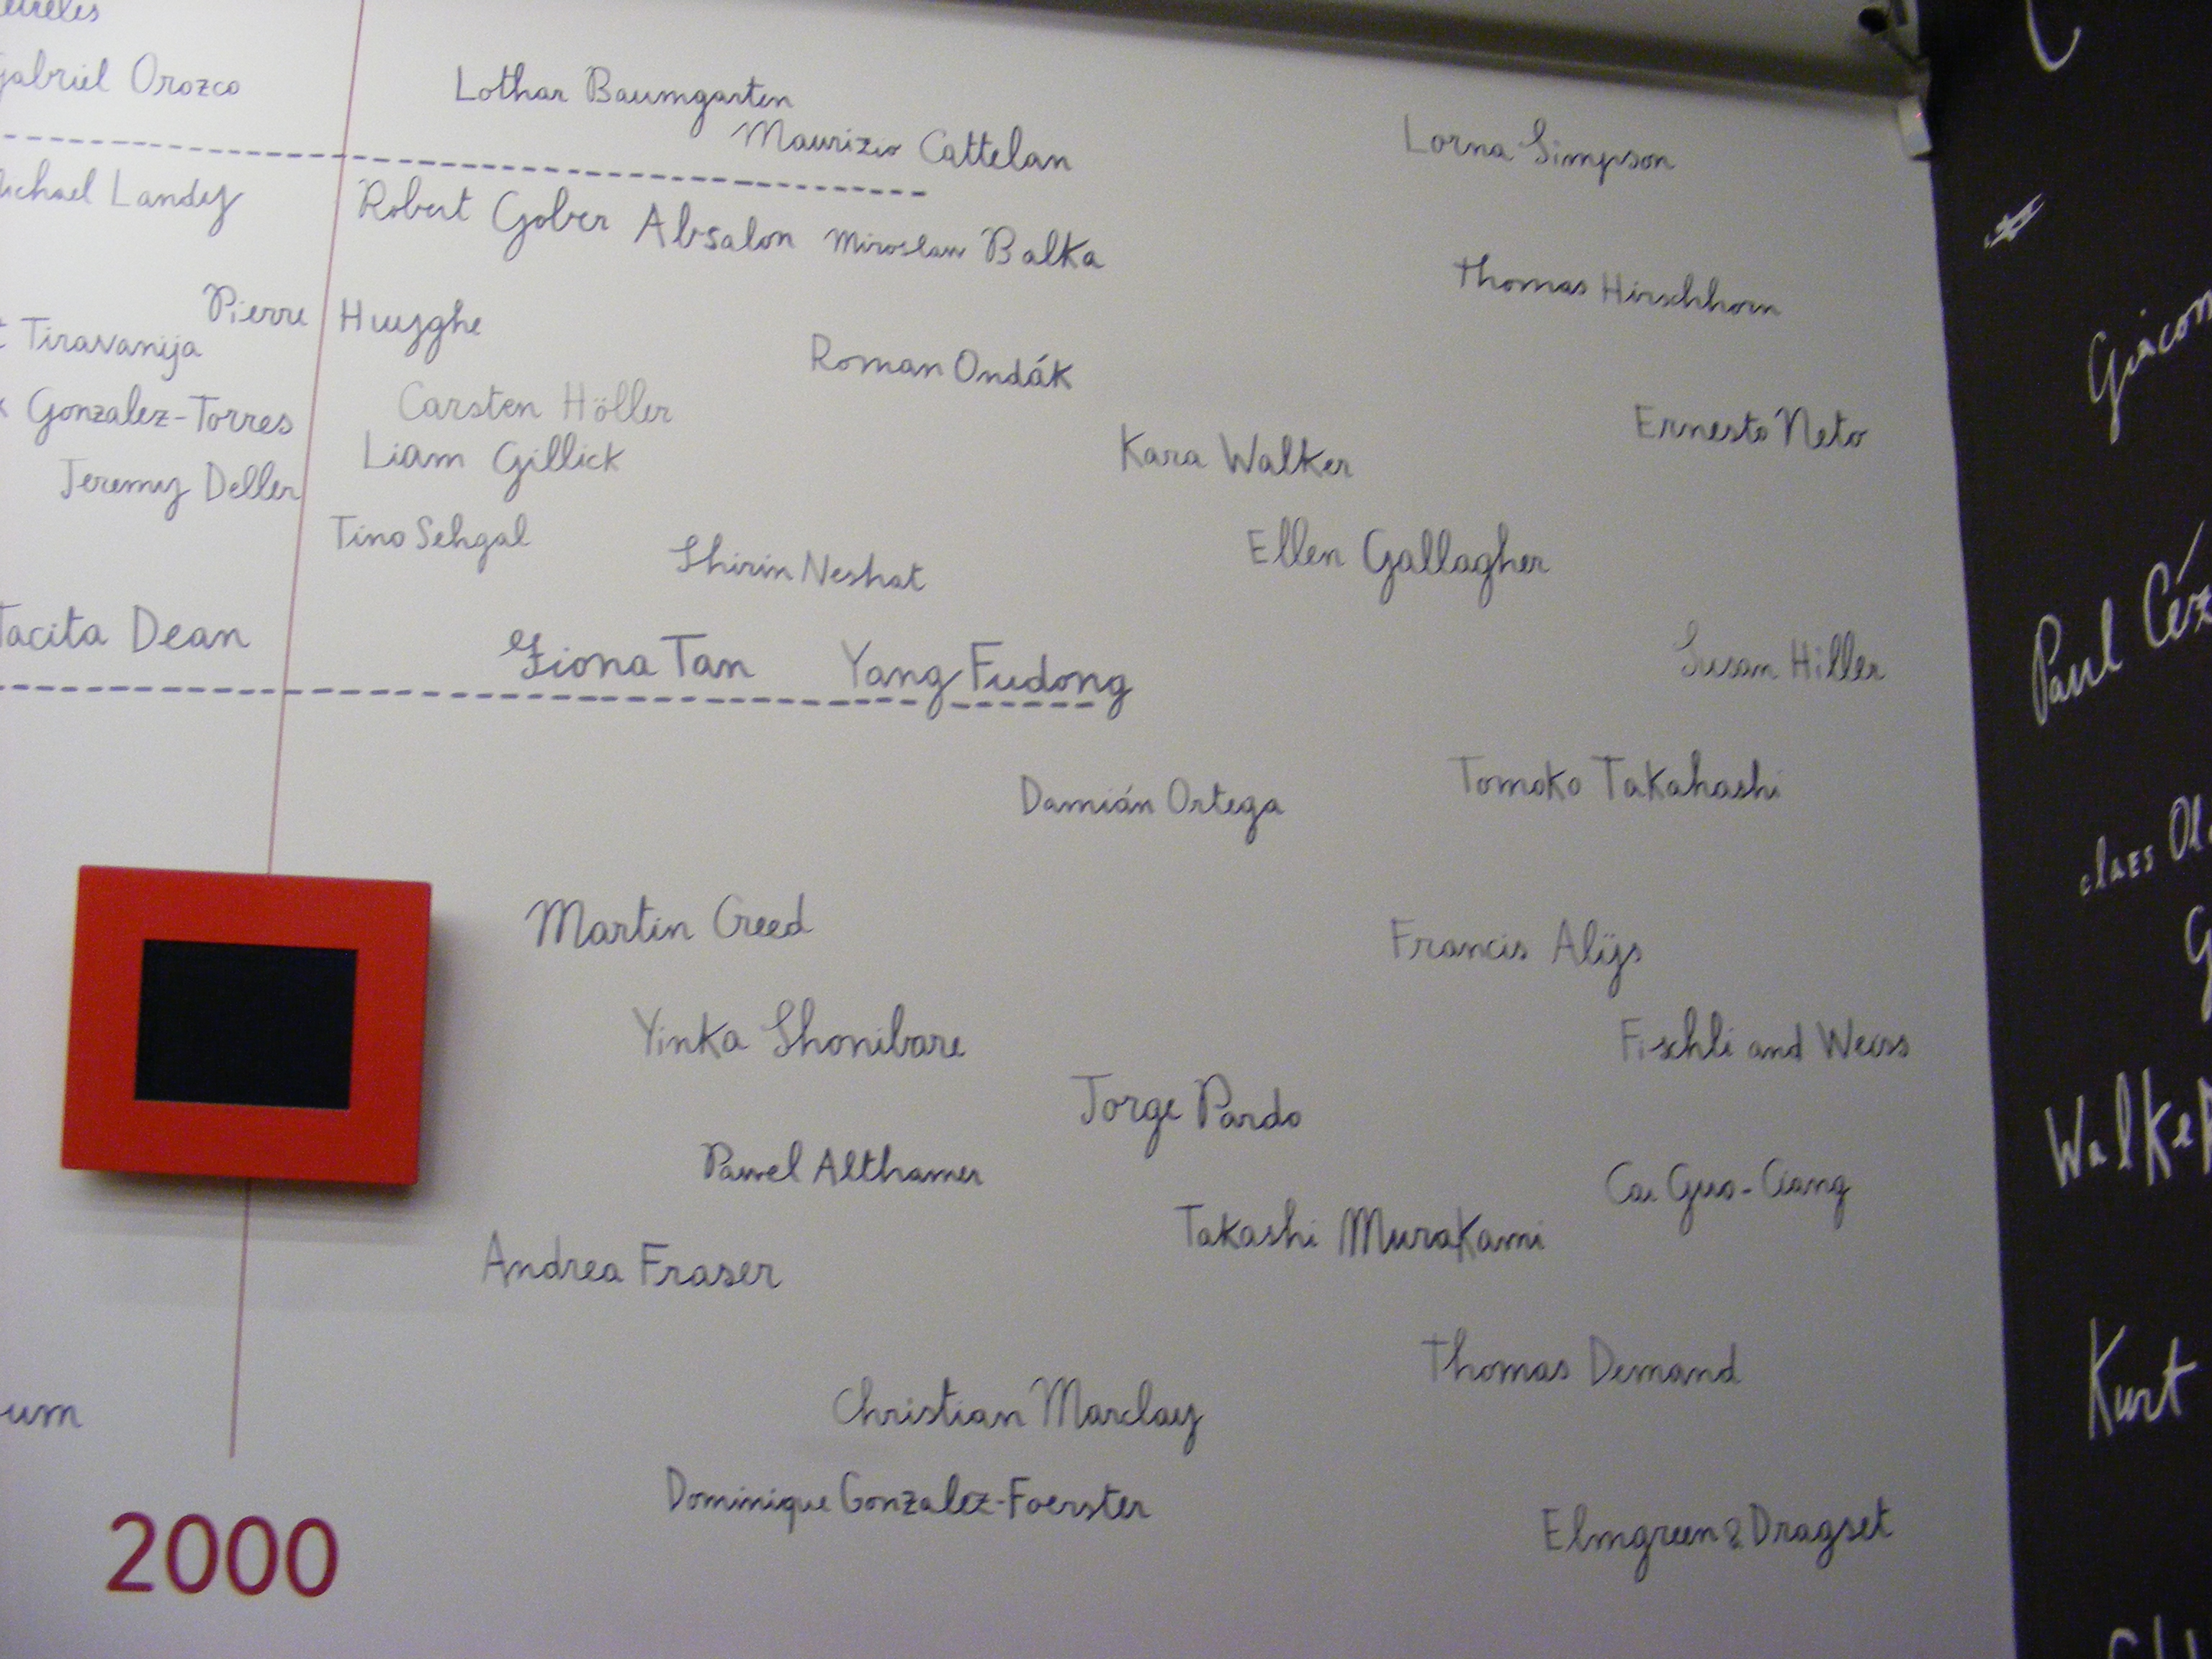 Gabriel Orozco
Lothar Baumgarten
Maurizio Cattelan
Lorna Simpson
Landy
Robert Gober Absalon Miroslaw Balka
Thomas Hirschhorn
Pierre Huyghe
Tiravanija
Roman Ondák
Carsten Höller
Gonzalez-Torres
Ernesto Neto
Liam Gillick
Kara Walker
Jeremy Deller
Tino Sehgal
Shirin Neshat
Ellen Gallagher
Tacita Dean
Fiona Tan
Yang Fudong
Susan Hiller
Damián Ortega
Tomoko Takahashi
Martin Creed
Francis Alÿs
Yinka Shonibare
Fischli and Weiss
Jorge Pardo
Pawel Althamer
Cai Guo-Ciang
Takashi Murakami
Andrea Fraser
Thomas Demand
Christian Marclay
um
Dominique Gonzalez-Foerster
Elmgreen & Dragset
2000
Giacom
Paul Céz
claes Ol
Walke
Kurt